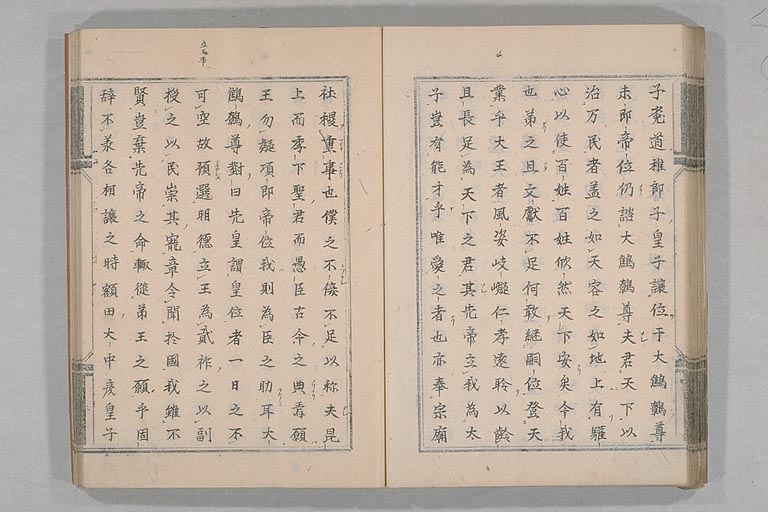 子菟道稚郎子皇子讓位于大鷦鷯尊
未即帝位仍諮大鷦鷯尊夫君天下以
治万民者盖之如天容之如地上有驩
心以使百姓百姓欣然天下安矣今我
也弟之且文獻不足何敢継嗣位登天
業乎大王者風姿岐嶷仁孝遠聆以齡
且長足為天下之君其先帝立我為太
子豈有能才乎唯愛之者也亦奉宗廟
社稷重事也僕之不侫不足以称夫昆
上而季下聖君而愚臣古今之典焉願
王勿疑須即帝位我則為臣之助耳大
鷦鷯尊對曰先皇謂皇位者一日之不
可空故預選明德立王為貳祚之以副
授之以民崇其寵章令聞於國我雖不
賢豈棄先帝之命輙從弟王之願乎固
辞不羕各相讓之時額田大中彦皇子